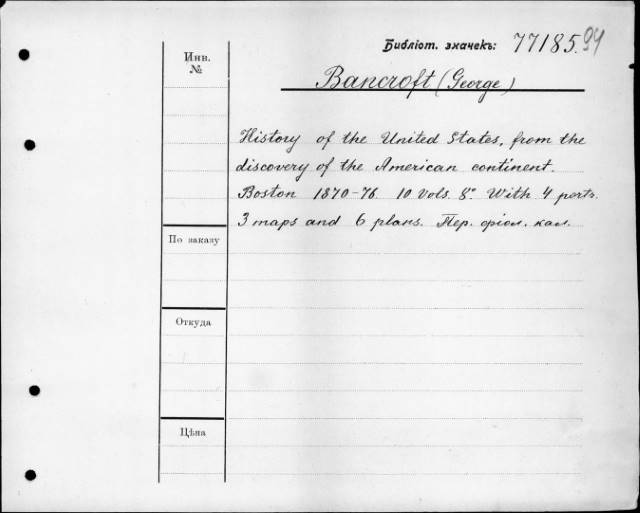 Библіот. значекъ: 77185.94
Инв.
№
Bancroft (George)
History of the United States, from the
discovery of the American continent.
Boston 1870-76. 10 Vols. 8°. With 4 ports.
3 maps and 6 plans. Пер. фіол. кал.
По заказу
Откуда
Цѣна